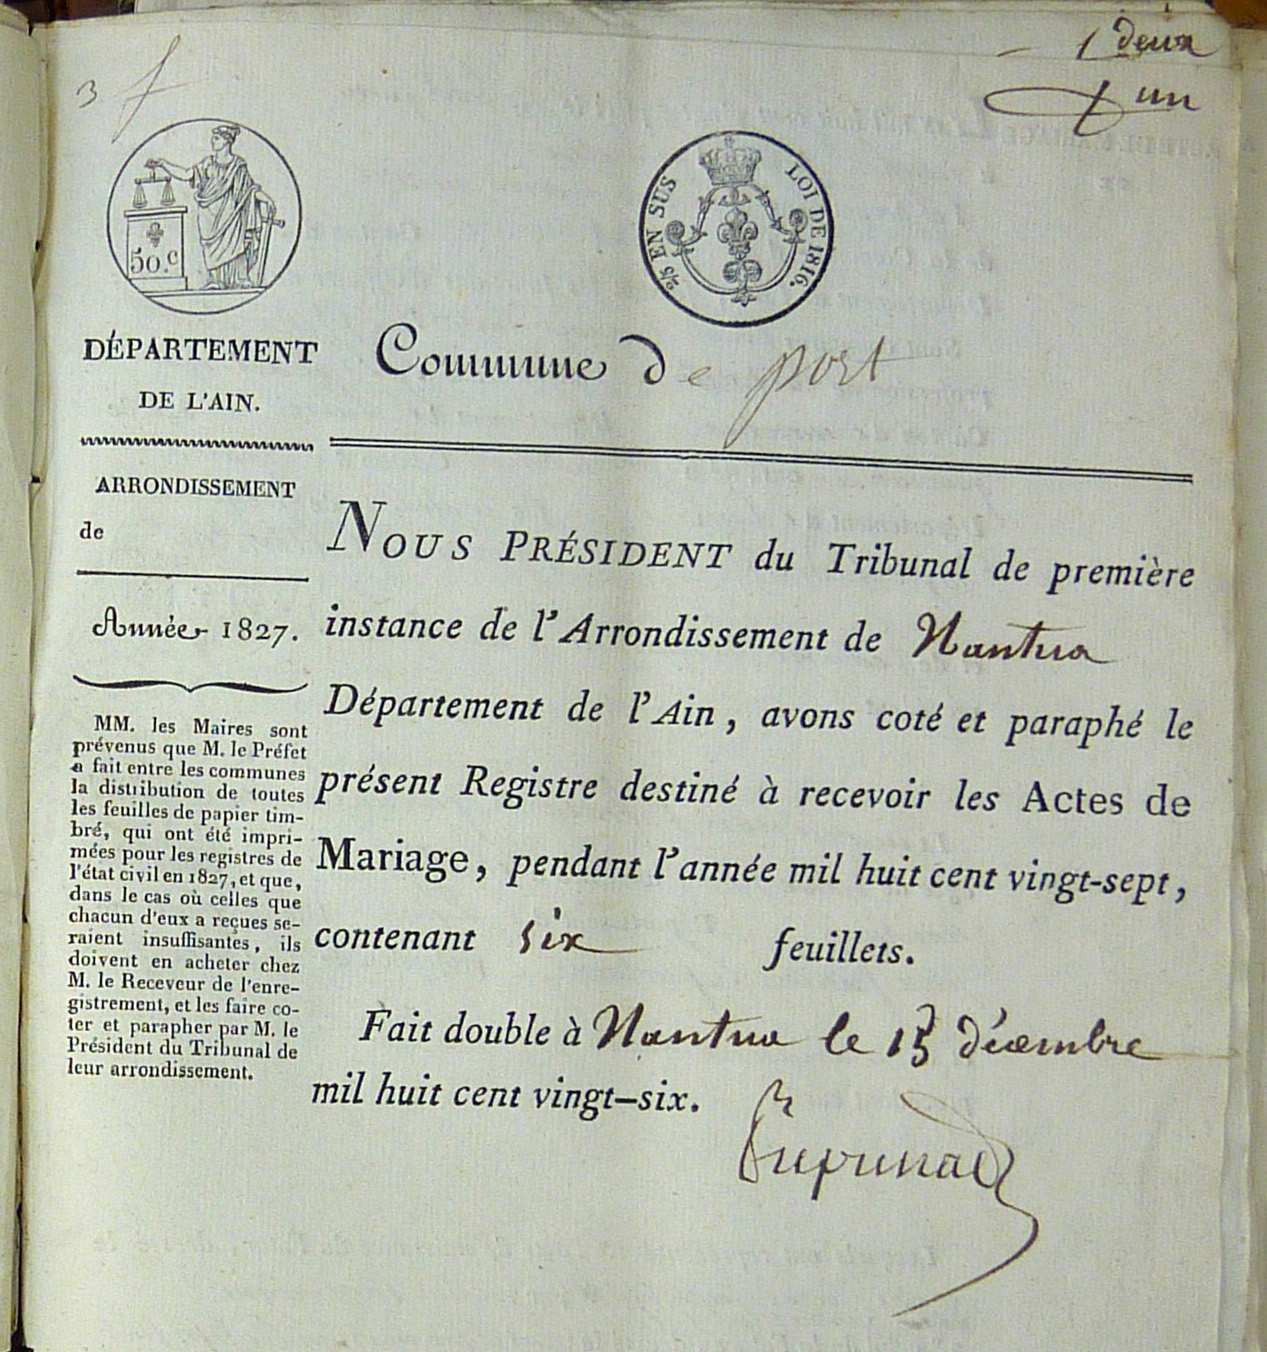 deux
un
3
50.c
2/5 EN SUS LOI DE 1816.
DÉPARTEMENT
DE L'AIN.
Commune de port
ARRONDISSEMENT
de
Année 1827.
MM. les Maires sont
prévenus que M. le Préfet
a fait entre les communes
la distribution de toutes
les feuilles de papier tim-
bré, qui ont été impri-
mées pour les registres de
l'état civil en 1827, et que,
dans le cas où celles que
chacun d'eux a reçues se-
raient insuffisantes, ils
doivent en acheter chez
M. le Receveur de l'enre-
gistrement, et les faire co-
ter et parapher par M. le
Président du Tribunal de
leur arrondissement.
NOUS PRÉSIDENT du Tribunal de première
instance de l'Arrondissement de Nantua
Département de l'Ain, avons coté et paraphé le
présent Registre destiné à recevoir les Actes de
Mariage, pendant l'année mil huit cent vingt-sept,
contenant six feuillets.
Fait double à Nantua le 15 décembre
mil huit cent vingt-six.